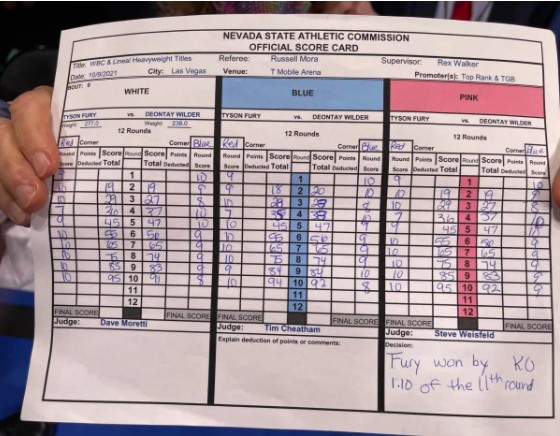 NEVADA STATE ATHLETIC COMMISSION
OFFICIAL SCORE CARD
Title: WBC & Lineal Heavyweight Titles Referee: Russell Mora Supervisor: Rex Walker
Date: 10/9/2021 City: Las Vegas Venue: T Mobile Arena Promoter(s): Top Rank & TGB
BOUT: 9
WHITE
TYSON FURY vs. DEONTAY WILDER
Weight 277.0 Weight 238.0
12 Rounds
Red Corner Corner Blue
Round Score Points Deducted Score Total Round Score Total Points Deducted Round Score
1 10
10 19 2 19 9
10 29 3 27 8
7 36 4 37 10
9 45 5 47 10
10 55 6 56 9
10 65 7 65 9
10 75 8 74 9
10 85 9 83 9
10 95 10 91 8
11
12
FINAL SCORE FINAL SCORE
Judge: Dave Moretti
BLUE
TYSON FURY vs. DEONTAY WILDER
12 Rounds
Red Corner Corner Blue
Round Score Points Deducted Score Total Round Score Total Points Deducted Round Score
9 1 10
9 18 2 20 10
10 28 3 28 8
7 4 38 10
45 5 47 9
55 6 56 9
10 65 7 65 9
10 75 8 74 9
9 84 9 84 10
10 94 10 92 8
11
12
FINAL SCORE FINAL SCORE
Judge: Tim Cheatham
Explain deduction of points or comments:
PINK
TYSON FURY vs. DEONTAY WILDER
12 Rounds
Red Corner Corner Blue
Round Score Points Deducted Score Total Round Score Total Points Deducted Round Score
9 1
10 19 2 19
10 29 3 27 8
7 36 4 37 10
9 45 5 47
10 55 6 56 9
10 65 7 65 9
10 75 8 74 9
10 85 9 83 9
10 95 10 92 9
11
12
FINAL SCORE FINAL SCORE
Judge: Steve Weisfeld
Decision:
Fury won by KO
1:10 of the 11th round